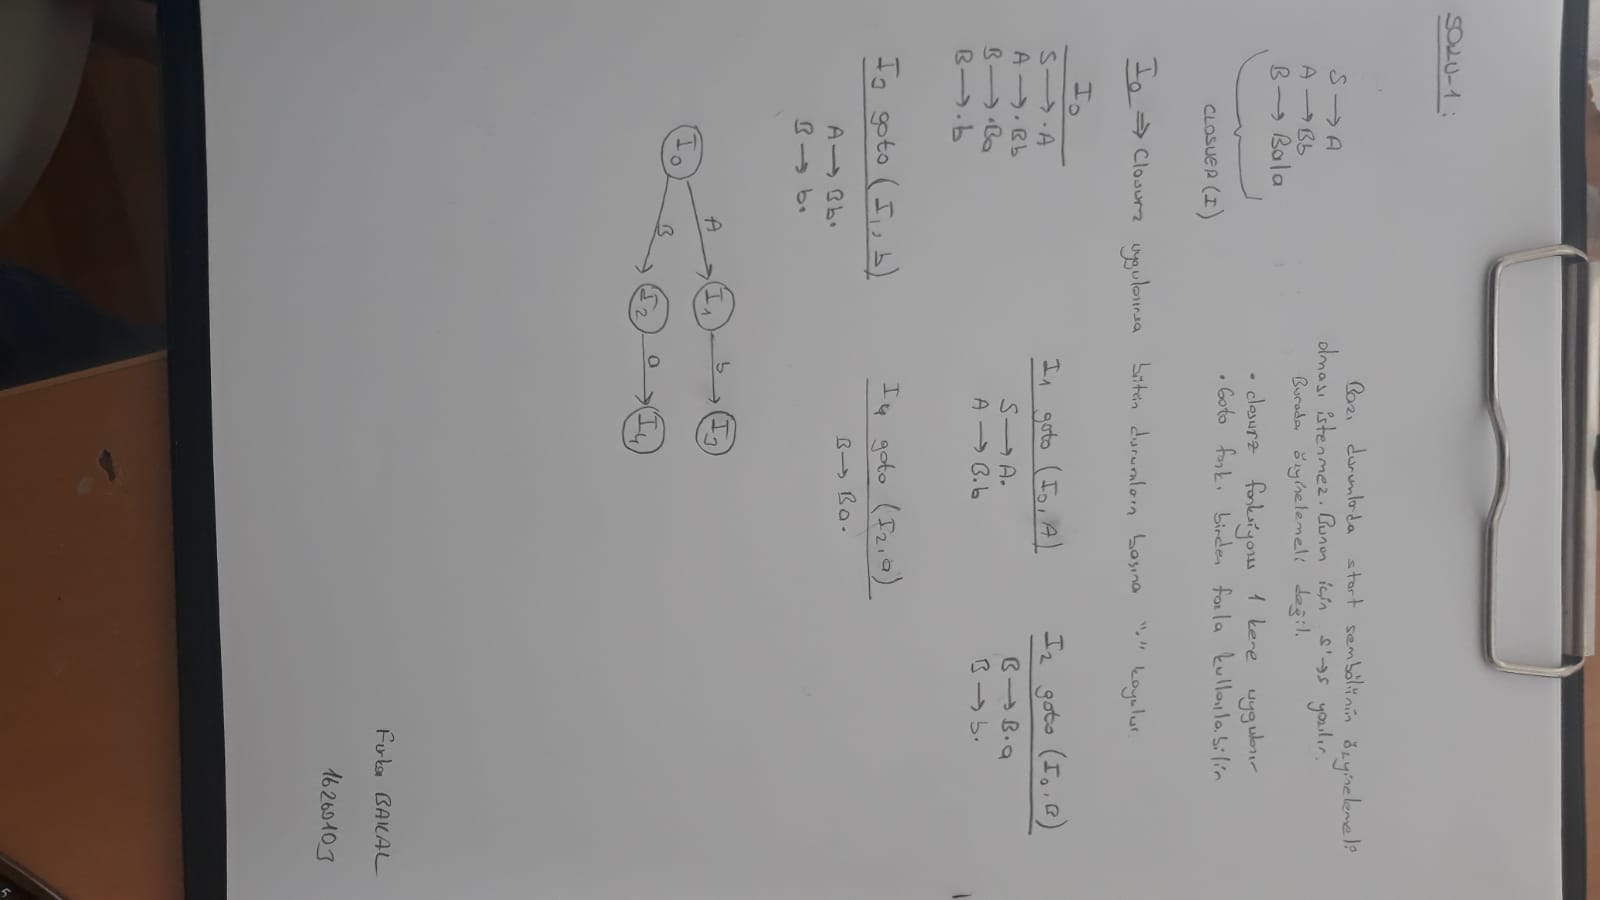 SORU-1:
S → A
A → Bb
B → Ba|a
CLOSUER (I)
Bazı durumlarda start sembolünün özyinelemeli
olması istenmez. Bunun için S'→S yazılır.
Burada özyinelemeli değil.
• closure fonksiyonu 1 kere uygulanır
• Goto fonk. birden fazla kullanılabilir
I0 ⇒ Closure uygulanırsa bütün durumların başına "." koyulur.
I0
S → .A
A → .Bb
B → .Ba
B → .b
I1 goto (I0, A)
S → A.
A → B.b
I2 goto (I0, B)
B → B.a
B → b.
I3 goto (I1, b)
A → Bb.
B → b.
I4 goto (I2, a)
B → Ba.
I0 A I1 b I3
B I2 a I4
BAKAL
16260103